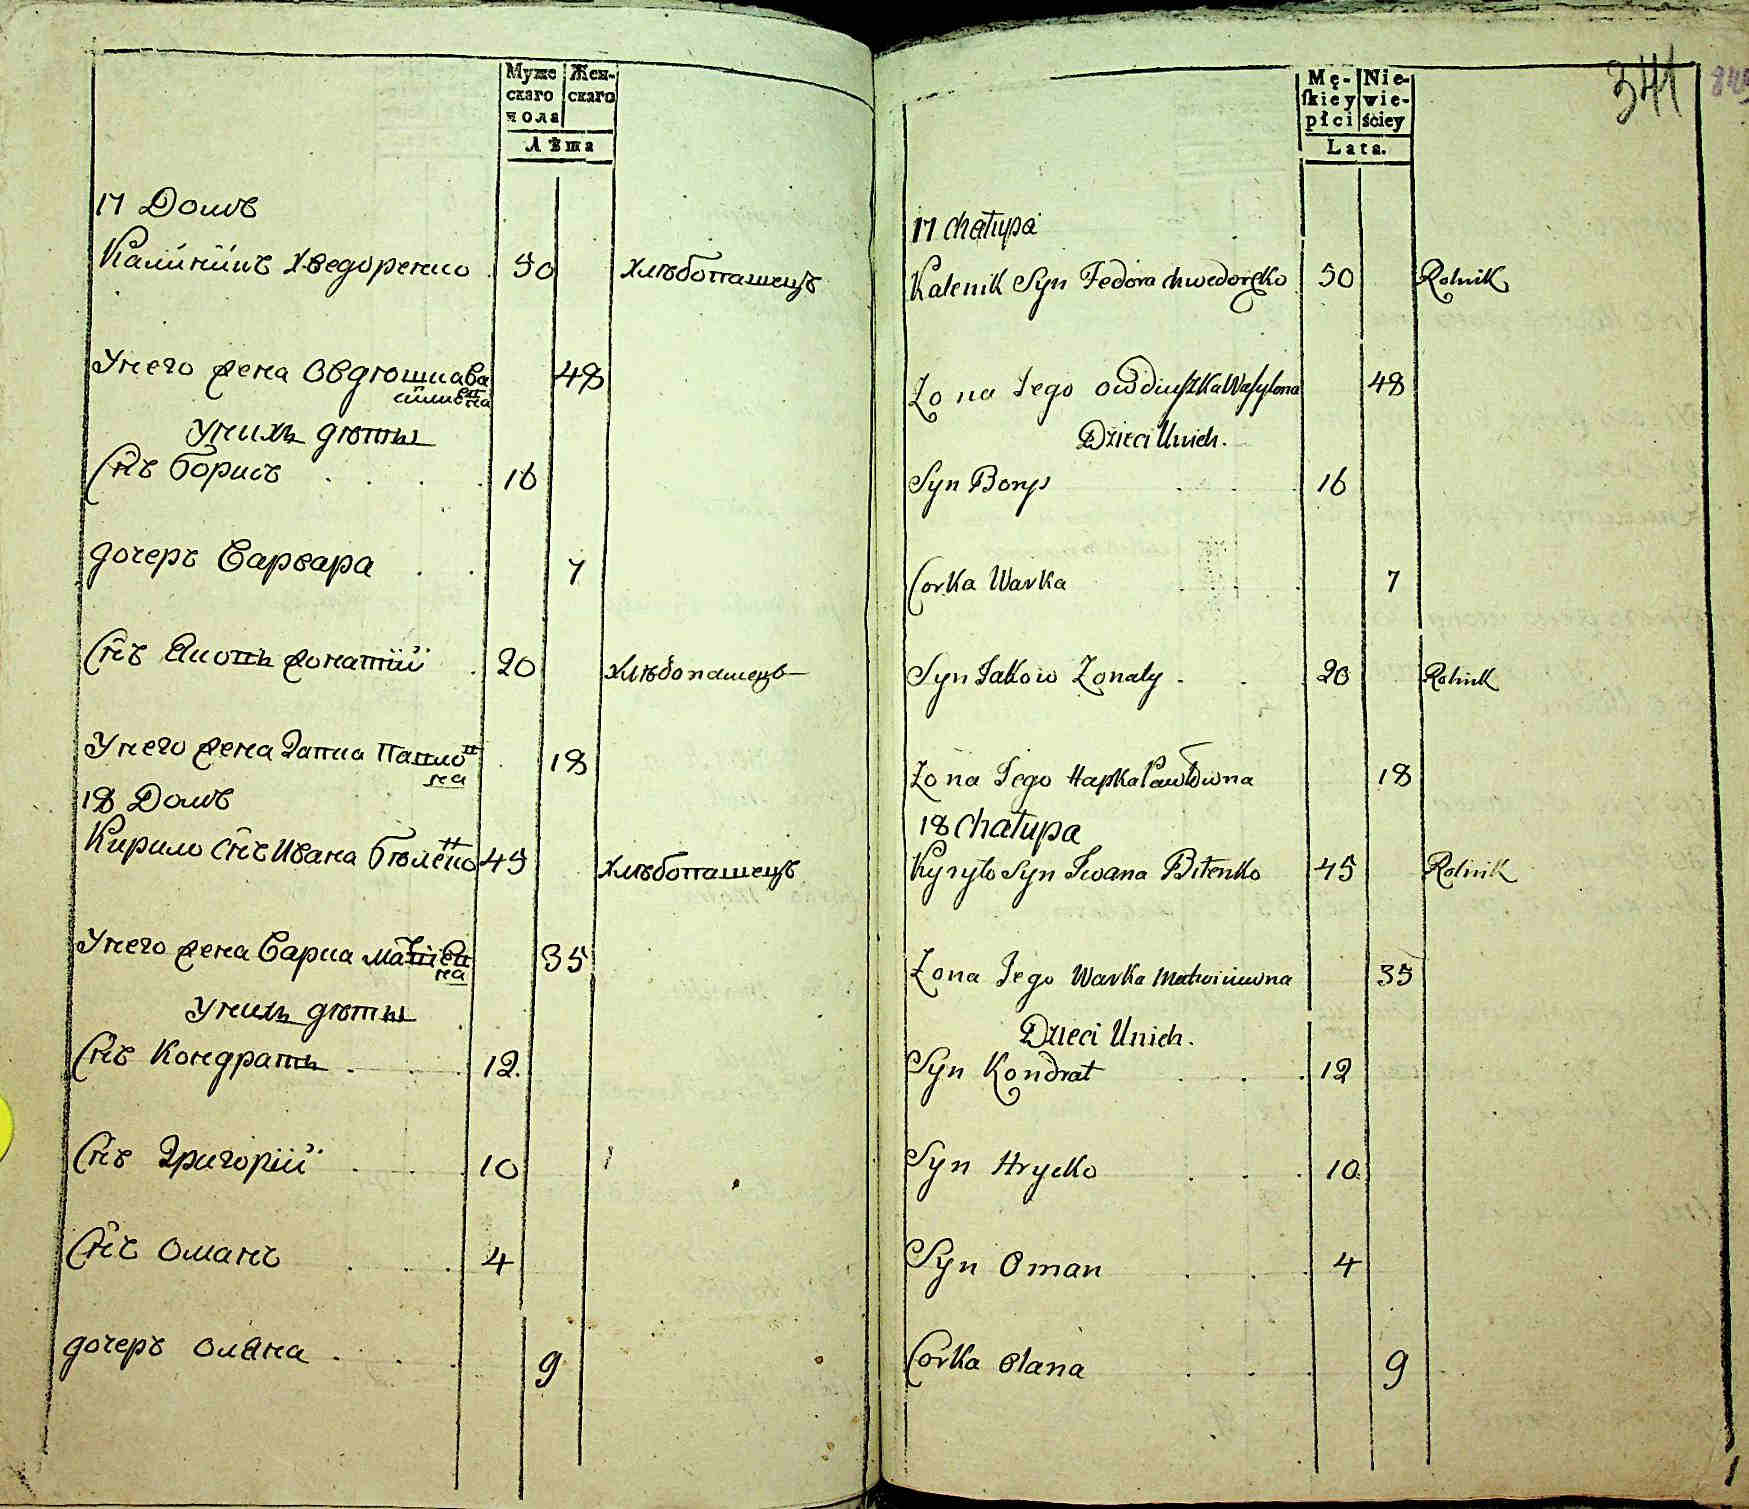 Муже Жен-
скаго скаго
пола
Лѣта
17 Домъ
Калиникъ Хведоренко . 50 хлѣбопашецъ
Унего жена Овдюшка Ва 48
силивна
Унихъ дѣти
Сн҃ъ Борисъ . . . . 16
дочеръ Варвара . . 7
Сн҃ъ Яковъ жонатий . 20 хлѣбопашецъ
Унего жена Гапка Павло . 18
на
18 Домъ
Кирило Сн҃ъ Ивана Бѣленко 45 хлѣбопашецъ
Унего жена Варка Матвіев 35
на
Унихъ дѣти
Сн҃ъ Кондратъ . . . 12.
Сн҃ъ Григорій . . . 10
Сн҃ъ Оманъ . . . 4
дочеръ Оляна . . . 9
341
Mę- Nie-
ſkiey wie-
płci ściey
Lata.
17 Chałupa
Kalenik Syn Fedora Chwedoręko 50 Rolnik
Zona Jego Owdiuszka Wasylona 48
Dzieci Unich.
Syn Borys . . . 16
Corka Warka . . . 7
Syn Jakow Zonaty . . . 20 Rolnik
Zona Jego Hapka Pawłowna 18
18 Chałupa
Kyryło Syn Iwana Biłenko 45 Rolnik
Zona Jego Warka Matwiiuwna 35
Dzieci Unich.
Syn Kondrat . . . 12
Syn Hrycko . . . 10
Syn Oman . . . 4
Corka Olana . . . 9